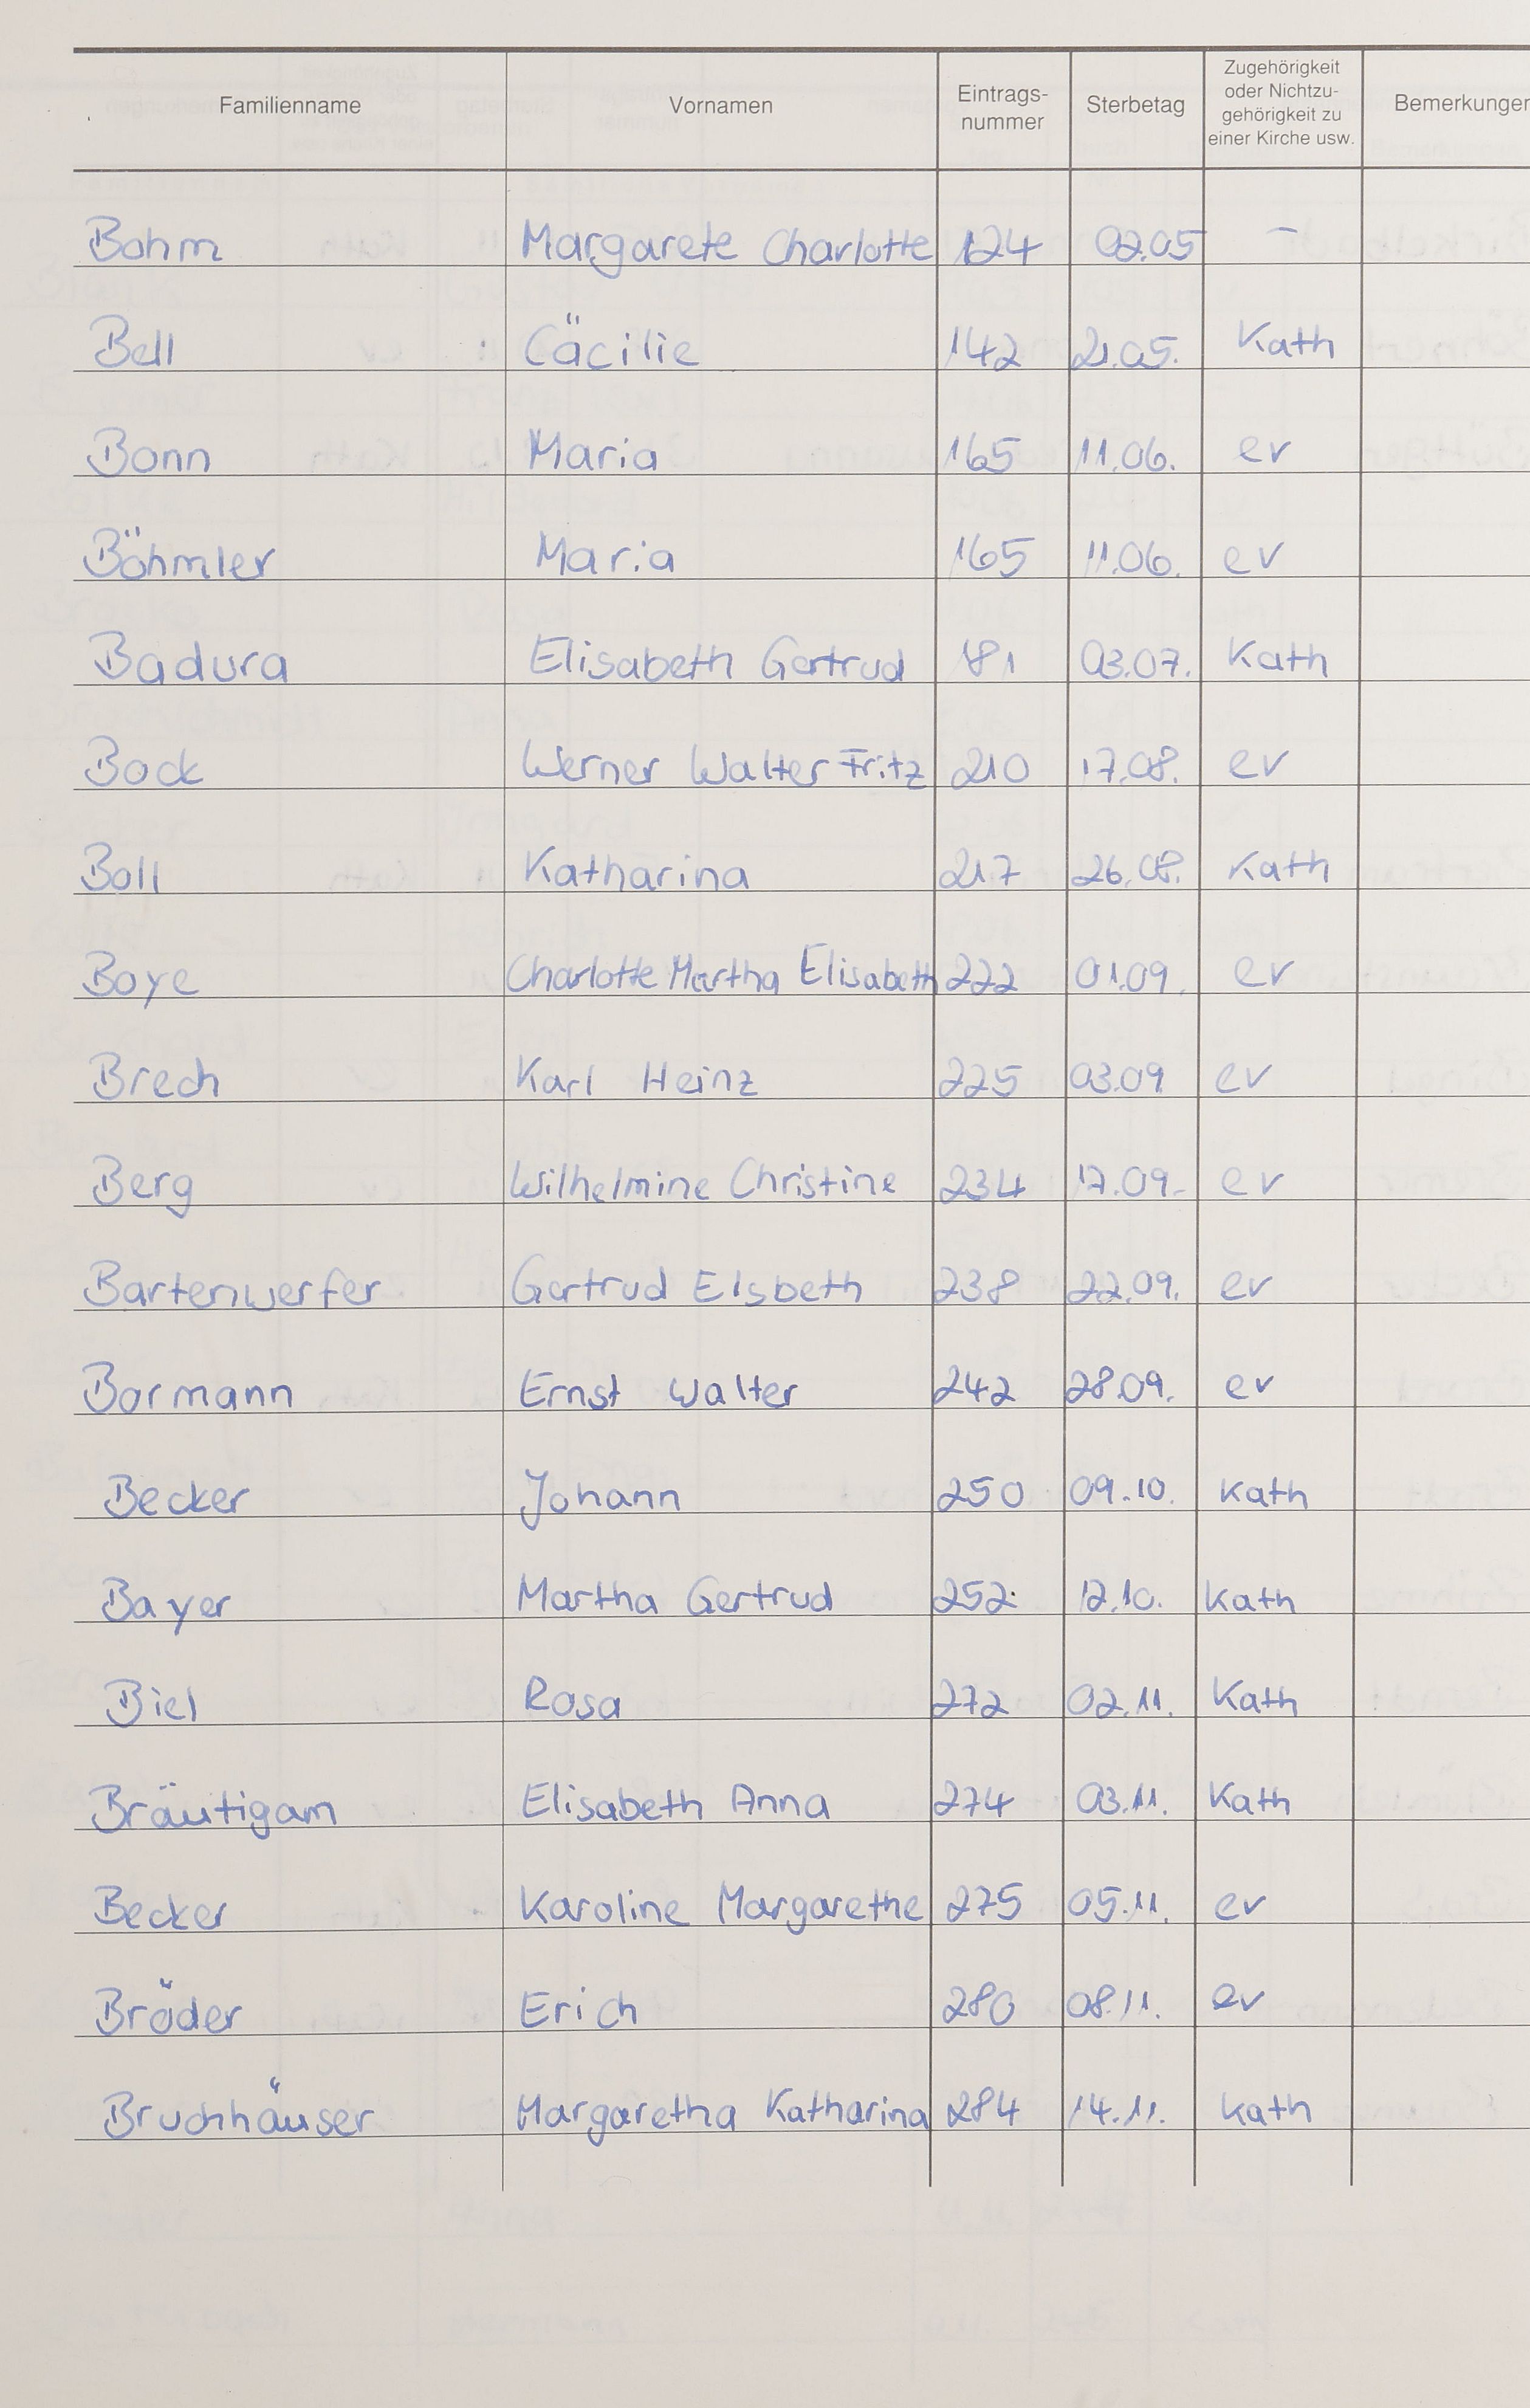 Familienname Vornamen Eintrags-nummer Sterbetag Zugehörigkeit oder Nichtzu-gehörigkeit zu einer Kirche usw. Bemerkungen
Bohm Margarete Charlotte 124 02.05 –
Bell Cäcilie 142 21.05. Kath
Bonn Maria 165 11.06. ev
Böhmler Maria 165 11.06. ev
Badura Elisabeth Gertrud 181 03.07. Kath
Bock Werner Walter Fritz 210 17.08. ev
Boll Katharina 217 26.08. Kath
Boye Charlotte Martha Elisabeth 222 01.09. ev
Brech Karl Heinz 225 03.09. ev
Berg Wilhelmine Christine 234 17.09. ev
Bartenwerfer Gertrud Elsbeth 238 22.09. ev
Bormann Ernst Walter 242 28.09. ev
Becker Johann 250 09.10. Kath
Bayer Martha Gertrud 252 12.10. Kath
Biel Rosa 272 02.11. Kath
Bräutigam Elisabeth Anna 274 03.11. Kath
Becker Karoline Margarethe 275 05.11. ev
Bröder Erich 280 08.11. ev
Bruchhäuser Margaretha Katharina 284 14.11. Kath